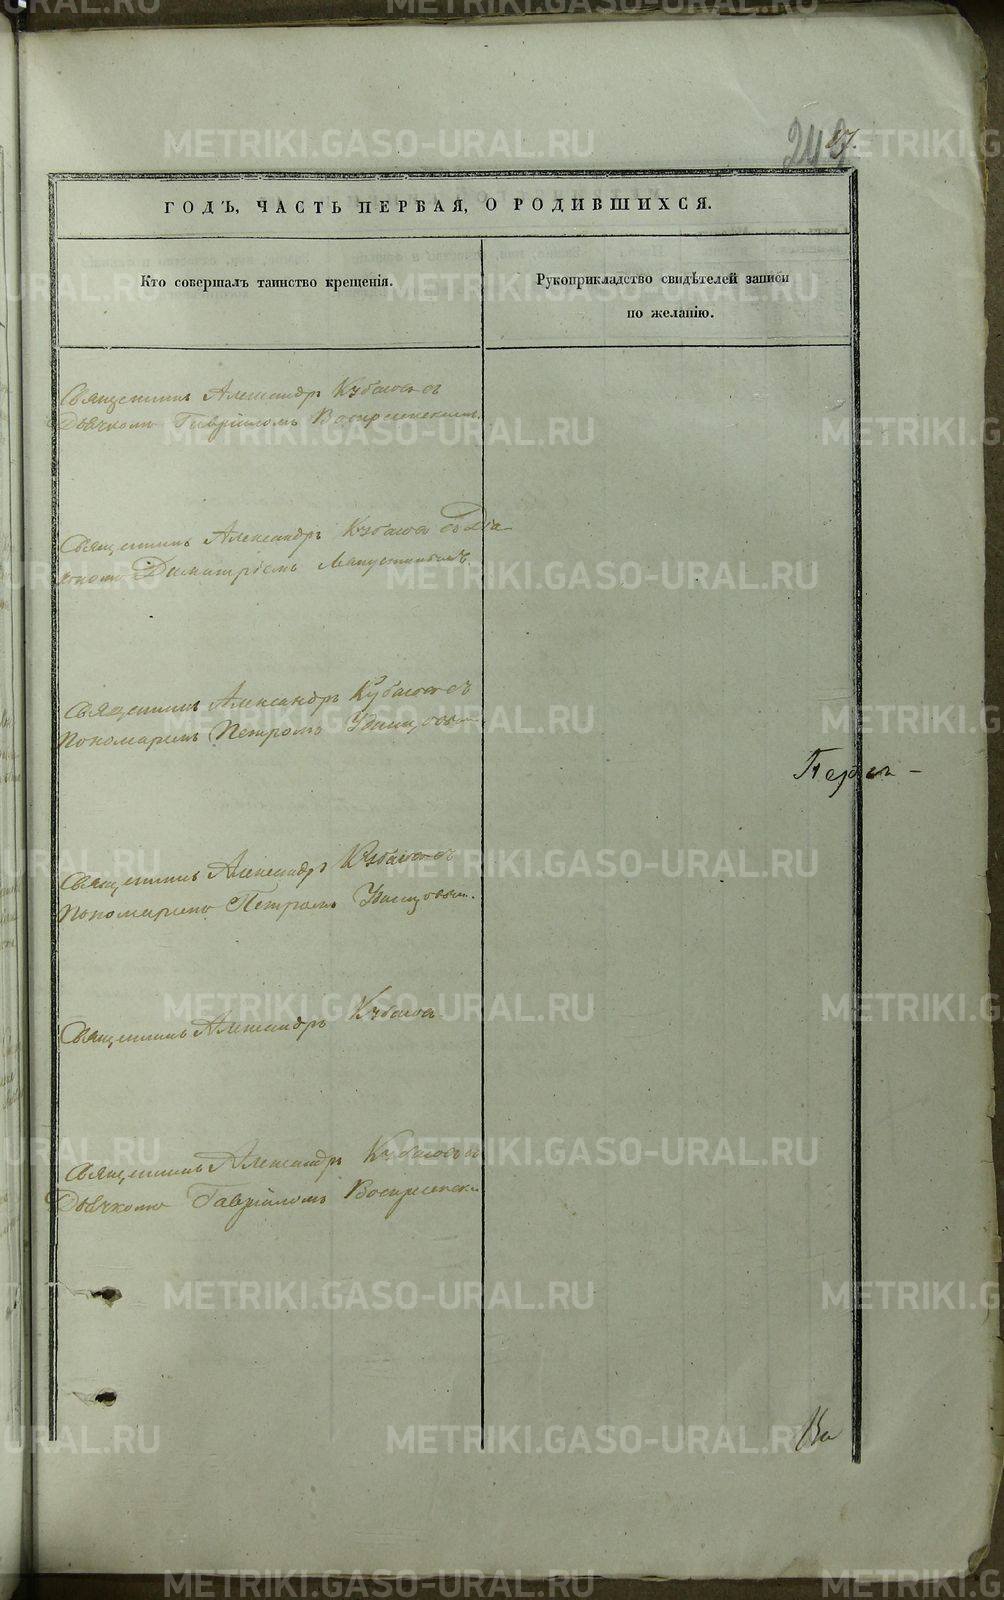 ГОДЪ, ЧАСТЬ ПЕРВАЯ, О РОДИВШИХСЯ.
Кто совершалъ таинство крещенія.
Рукоприкладство свидѣтелей записи
по желанію.
Священникъ Александръ Кубасовъ съ
Дьячкомъ Гавріиломъ Воскресенскимъ.
Священникъ Александръ Кубасовъ съ Діа
кономъ Димитріемъ
Священникъ Александръ Кубасовъ съ
Пономаремъ Петромъ
Священникъ Александръ Кубасовъ съ
Пономаремъ Петромъ
Священникъ Александръ Кубасовъ
Священникъ Александръ Кубасовъ съ
Дьячкомъ Гавріиломъ Воскресенск
METRIKI.GASO-URAL.RU